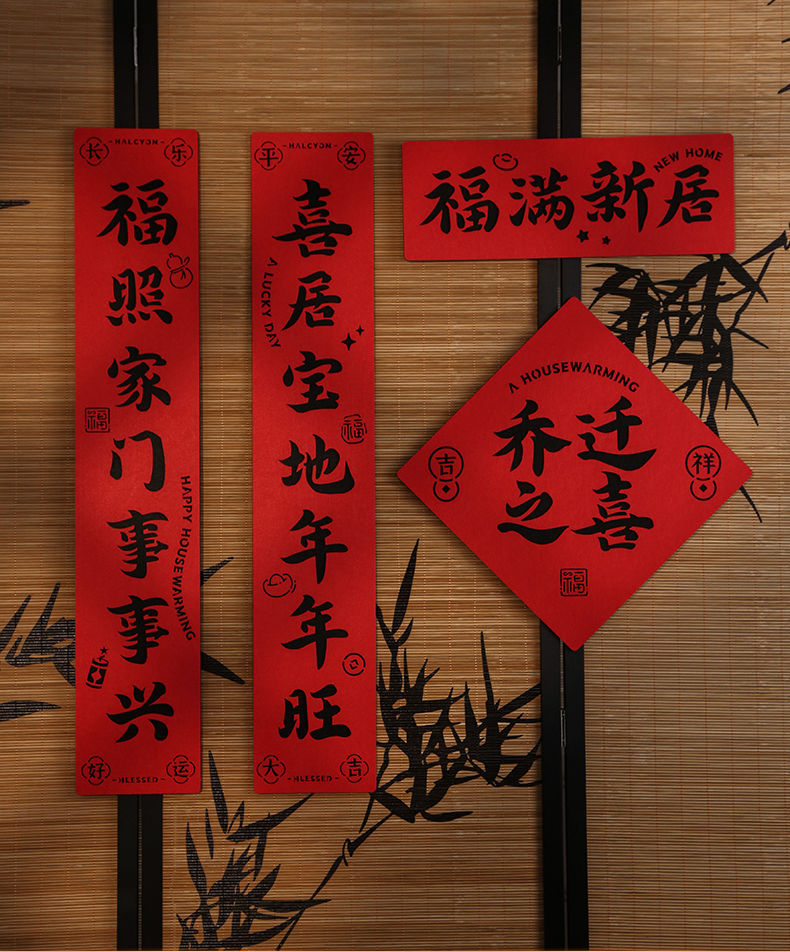 长 - HALCYON - 乐
福照家门事事兴
福
HAPPY HOUSEWARMING
好 - HLESSED - 运
平 - HALCYON - 安
喜居宝地年年旺
A LUCKY DAY
福
大 - HLESSED - 吉
福满新居
NEW HOME
A HOUSEWARMING
乔迁
之喜
吉
祥
福